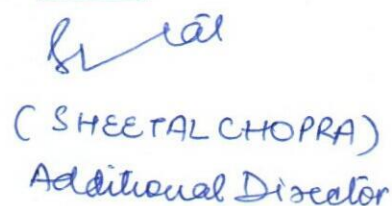 ( SHEETAL CHOPRA)
Additional Director